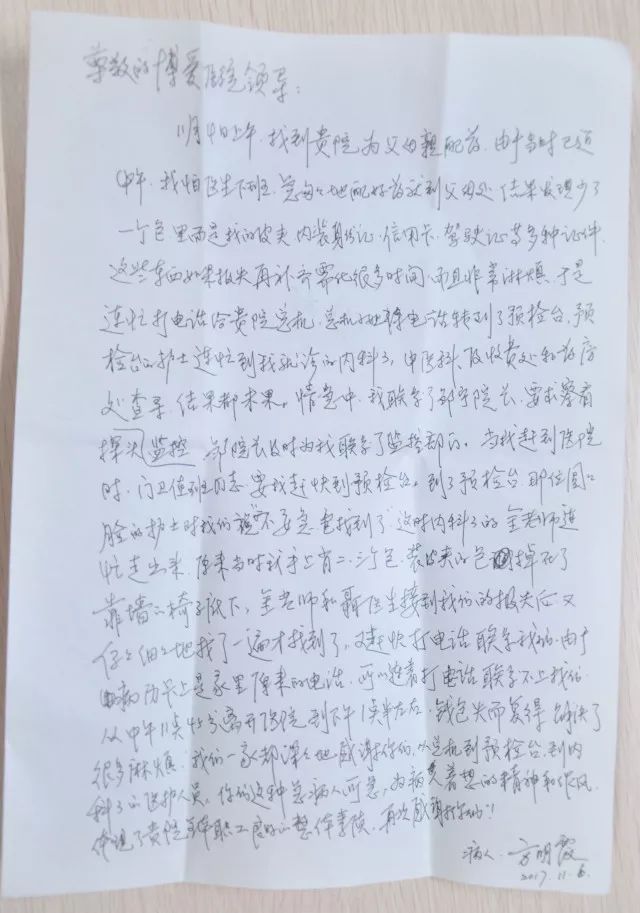 尊敬的博爱医院领导：
11月4日上午，找到贵院为父母亲配药，由于当时已近
中午，我怕医生下班，急匆匆地配好药就到父母处，结果发现少了
一个包，里面是我的皮夹，内装身份证、信用卡、驾驶证等多种证件，
这些东西如果报失再补齐需化很多时间，而且非常麻烦，于是
连忙打电话给贵院总机，总机小姐将电话转到了预检台，预
检台的护士连忙到我就诊的内科3、中医科、及收费处和药房
处查寻，结果都未果。情急中，我联系了邹宇院长，要求察看
探头监控，邹院长及时为我联系了监控部门。当我赶到医院
时，门卫值班同志要我赶快到预检台。到了预检台，那位圆
脸的护士对我们说不要急，包找到了，这时内科3的金老师连
忙走出来，原来当时我手上有二、三个包，装皮夹的包掉在了
靠墙的椅子底下，金老师和聂医生接到我们的报失后又
仔仔细细地找了一遍才找到了，赶快打电话联系我们。由于
病历卡上是家里原来的电话，所以连着打电话联系不上我们。
从中午11点45分离开医院到下午1点半左右，钱包失而复得，解决了
很多麻烦。我们一家都深深地感谢你们，从总机到预检台到内
科3的医护人员，你们这种急病人所急，为病员着想的精神和作风，
体现了贵院全体职工良好的整体素质，再次感谢你们！
病人：方明霞
2017.11.6.